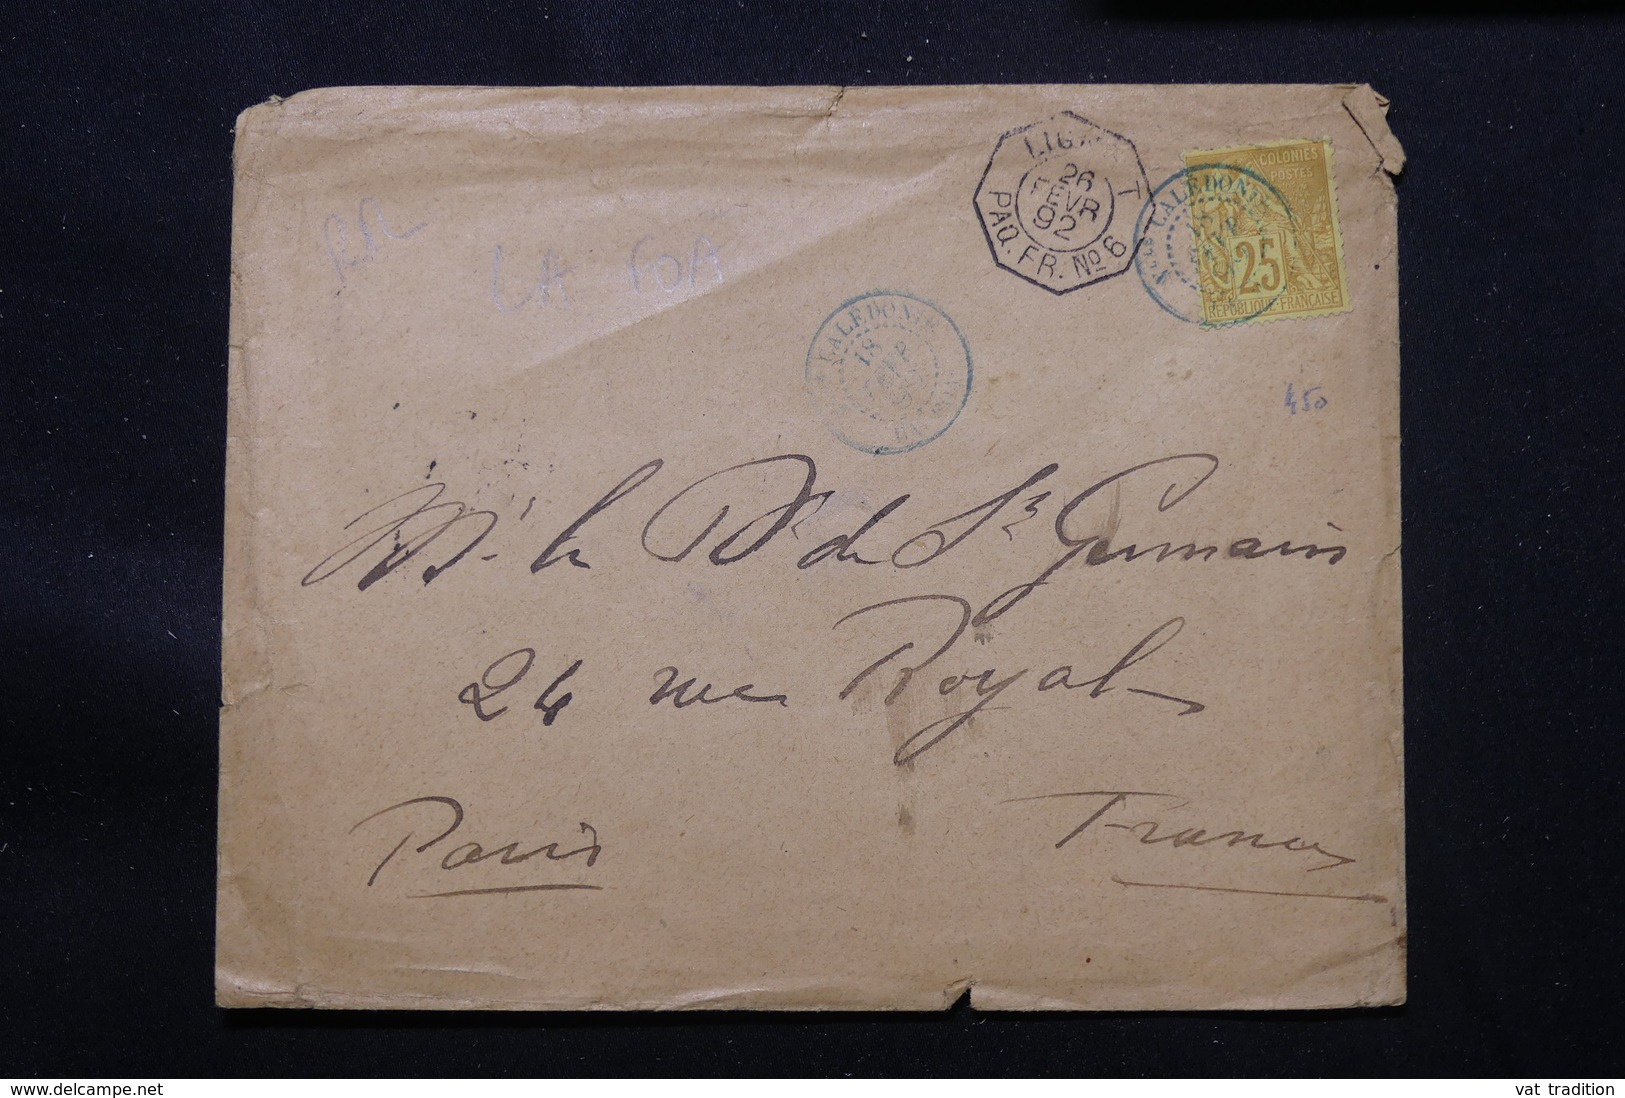 LIGNE T
26
FEVR
92
PAQ. FR. No 6
COLONIES
POSTES
25
REPUBLIQUE FRANÇAISE
Nlle CALEDONIE
RR
LA FOA
CALEDONIE
18
450
Mr le Dr de St Germain
24 rue Royale
Paris
France
delcampe.net
vat_tradition